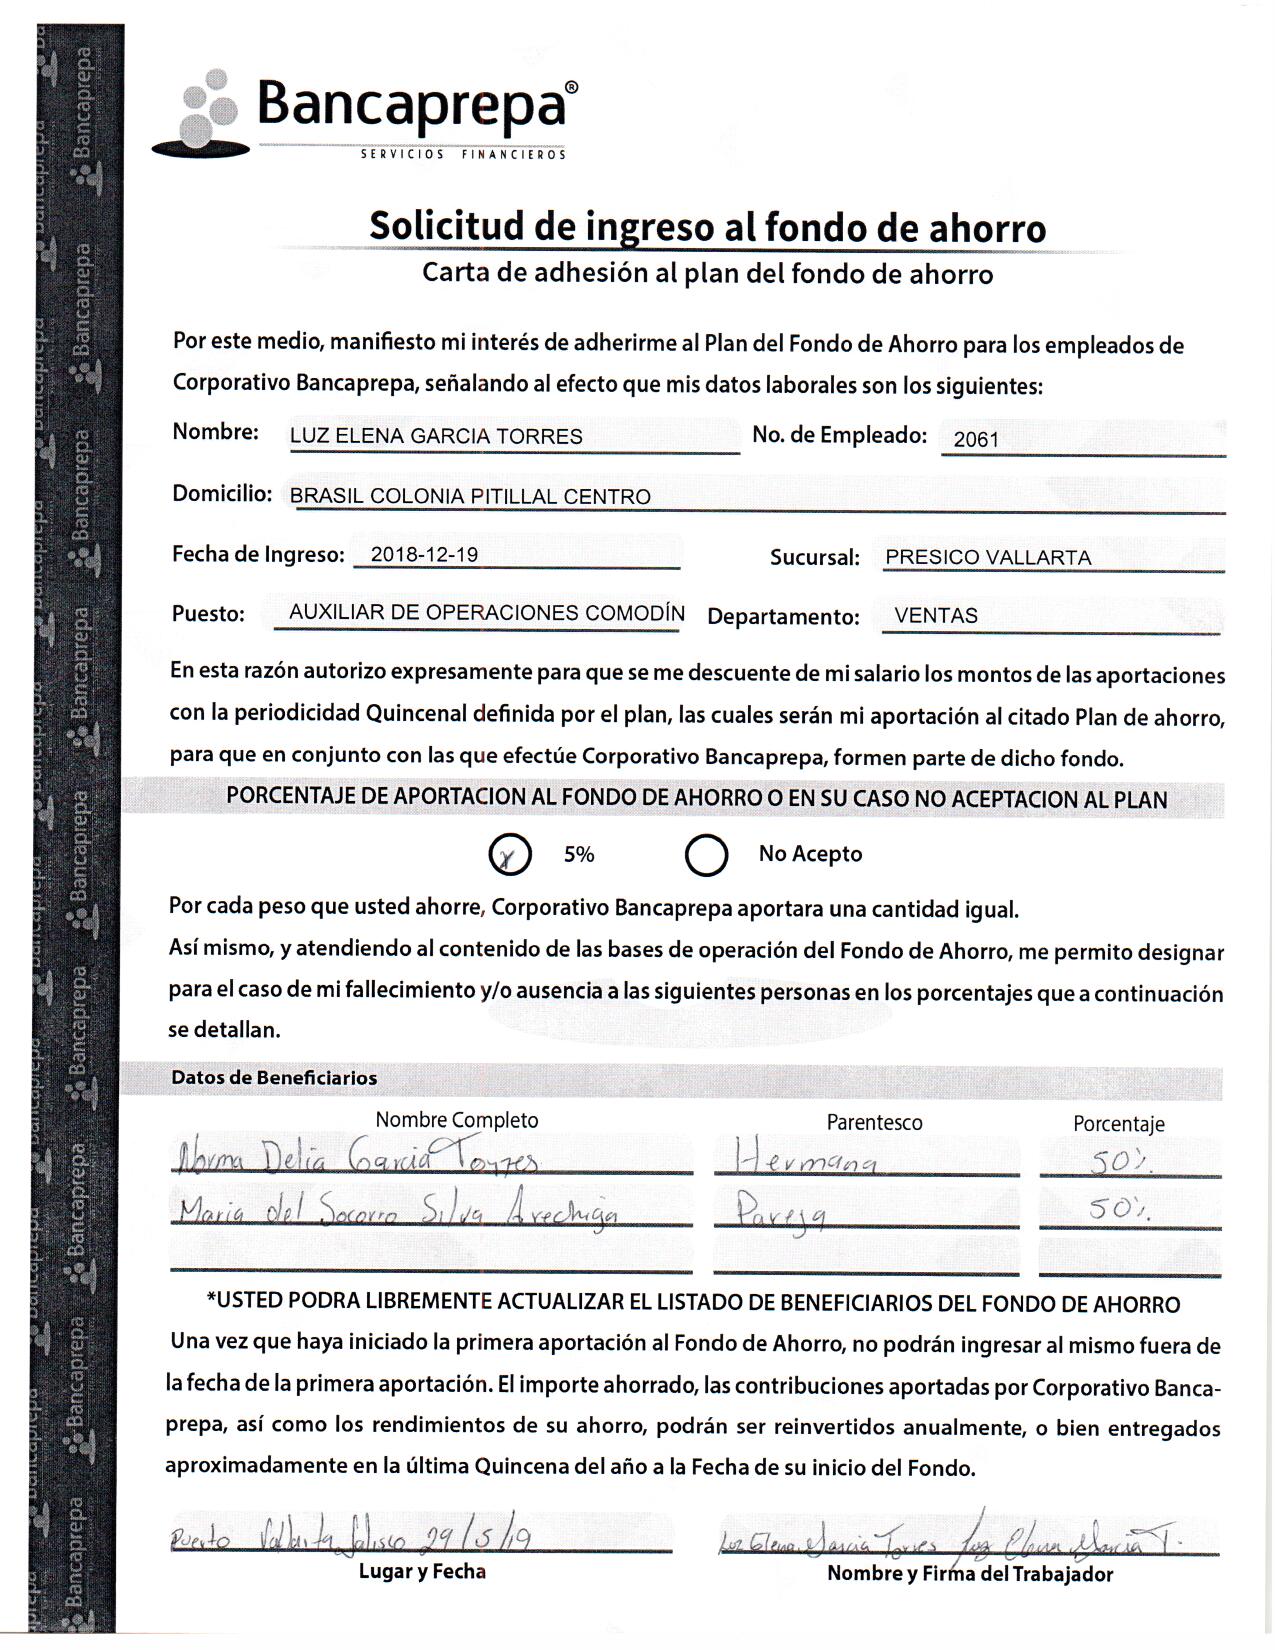 Bancaprepa®
SERVICIOS FINANCIEROS
Solicitud de ingreso al fondo de ahorro
Carta de adhesión al plan del fondo de ahorro
Por este medio, manifiesto mi interés de adherirme al Plan del Fondo de Ahorro para los empleados de
Corporativo Bancaprepa, señalando al efecto que mis datos laborales son los siguientes:
Nombre: LUZ ELENA GARCIA TORRES No. de Empleado: 2061
Domicilio: BRASIL COLONIA PITILLAL CENTRO
Fecha de Ingreso: 2018-12-19 Sucursal: PRESICO VALLARTA
Puesto: AUXILIAR DE OPERACIONES COMODÍN Departamento: VENTAS
En esta razón autorizo expresamente para que se me descuente de mi salario los montos de las aportaciones
con la periodicidad Quincenal definida por el plan, las cuales serán mi aportación al citado Plan de ahorro,
para que en conjunto con las que efectúe Corporativo Bancaprepa, formen parte de dicho fondo.
PORCENTAJE DE APORTACION AL FONDO DE AHORRO O EN SU CASO NO ACEPTACION AL PLAN
x 5% No Acepto
Por cada peso que usted ahorre, Corporativo Bancaprepa aportara una cantidad igual.
Así mismo, y atendiendo al contenido de las bases de operación del Fondo de Ahorro, me permito designar
para el caso de mi fallecimiento y/o ausencia a las siguientes personas en los porcentajes que a continuación
se detallan.
Datos de Beneficiarios
Nombre Completo Parentesco Porcentaje
Norma Delia Garcia Torres Hermana 50%
Maria del Socorro Silva Arechiga Pareja 50%
*USTED PODRA LIBREMENTE ACTUALIZAR EL LISTADO DE BENEFICIARIOS DEL FONDO DE AHORRO
Una vez que haya iniciado la primera aportación al Fondo de Ahorro, no podrán ingresar al mismo fuera de
la fecha de la primera aportación. El importe ahorrado, las contribuciones aportadas por Corporativo Banca-
prepa, así como los rendimientos de su ahorro, podrán ser reinvertidos anualmente, o bien entregados
aproximadamente en la última Quincena del año a la Fecha de su inicio del Fondo.
Puerto Vallarta Jalisco 29/5/19 Luz Elena Garcia Torres Luz Elena Garcia T.
Lugar y Fecha Nombre y Firma del Trabajador